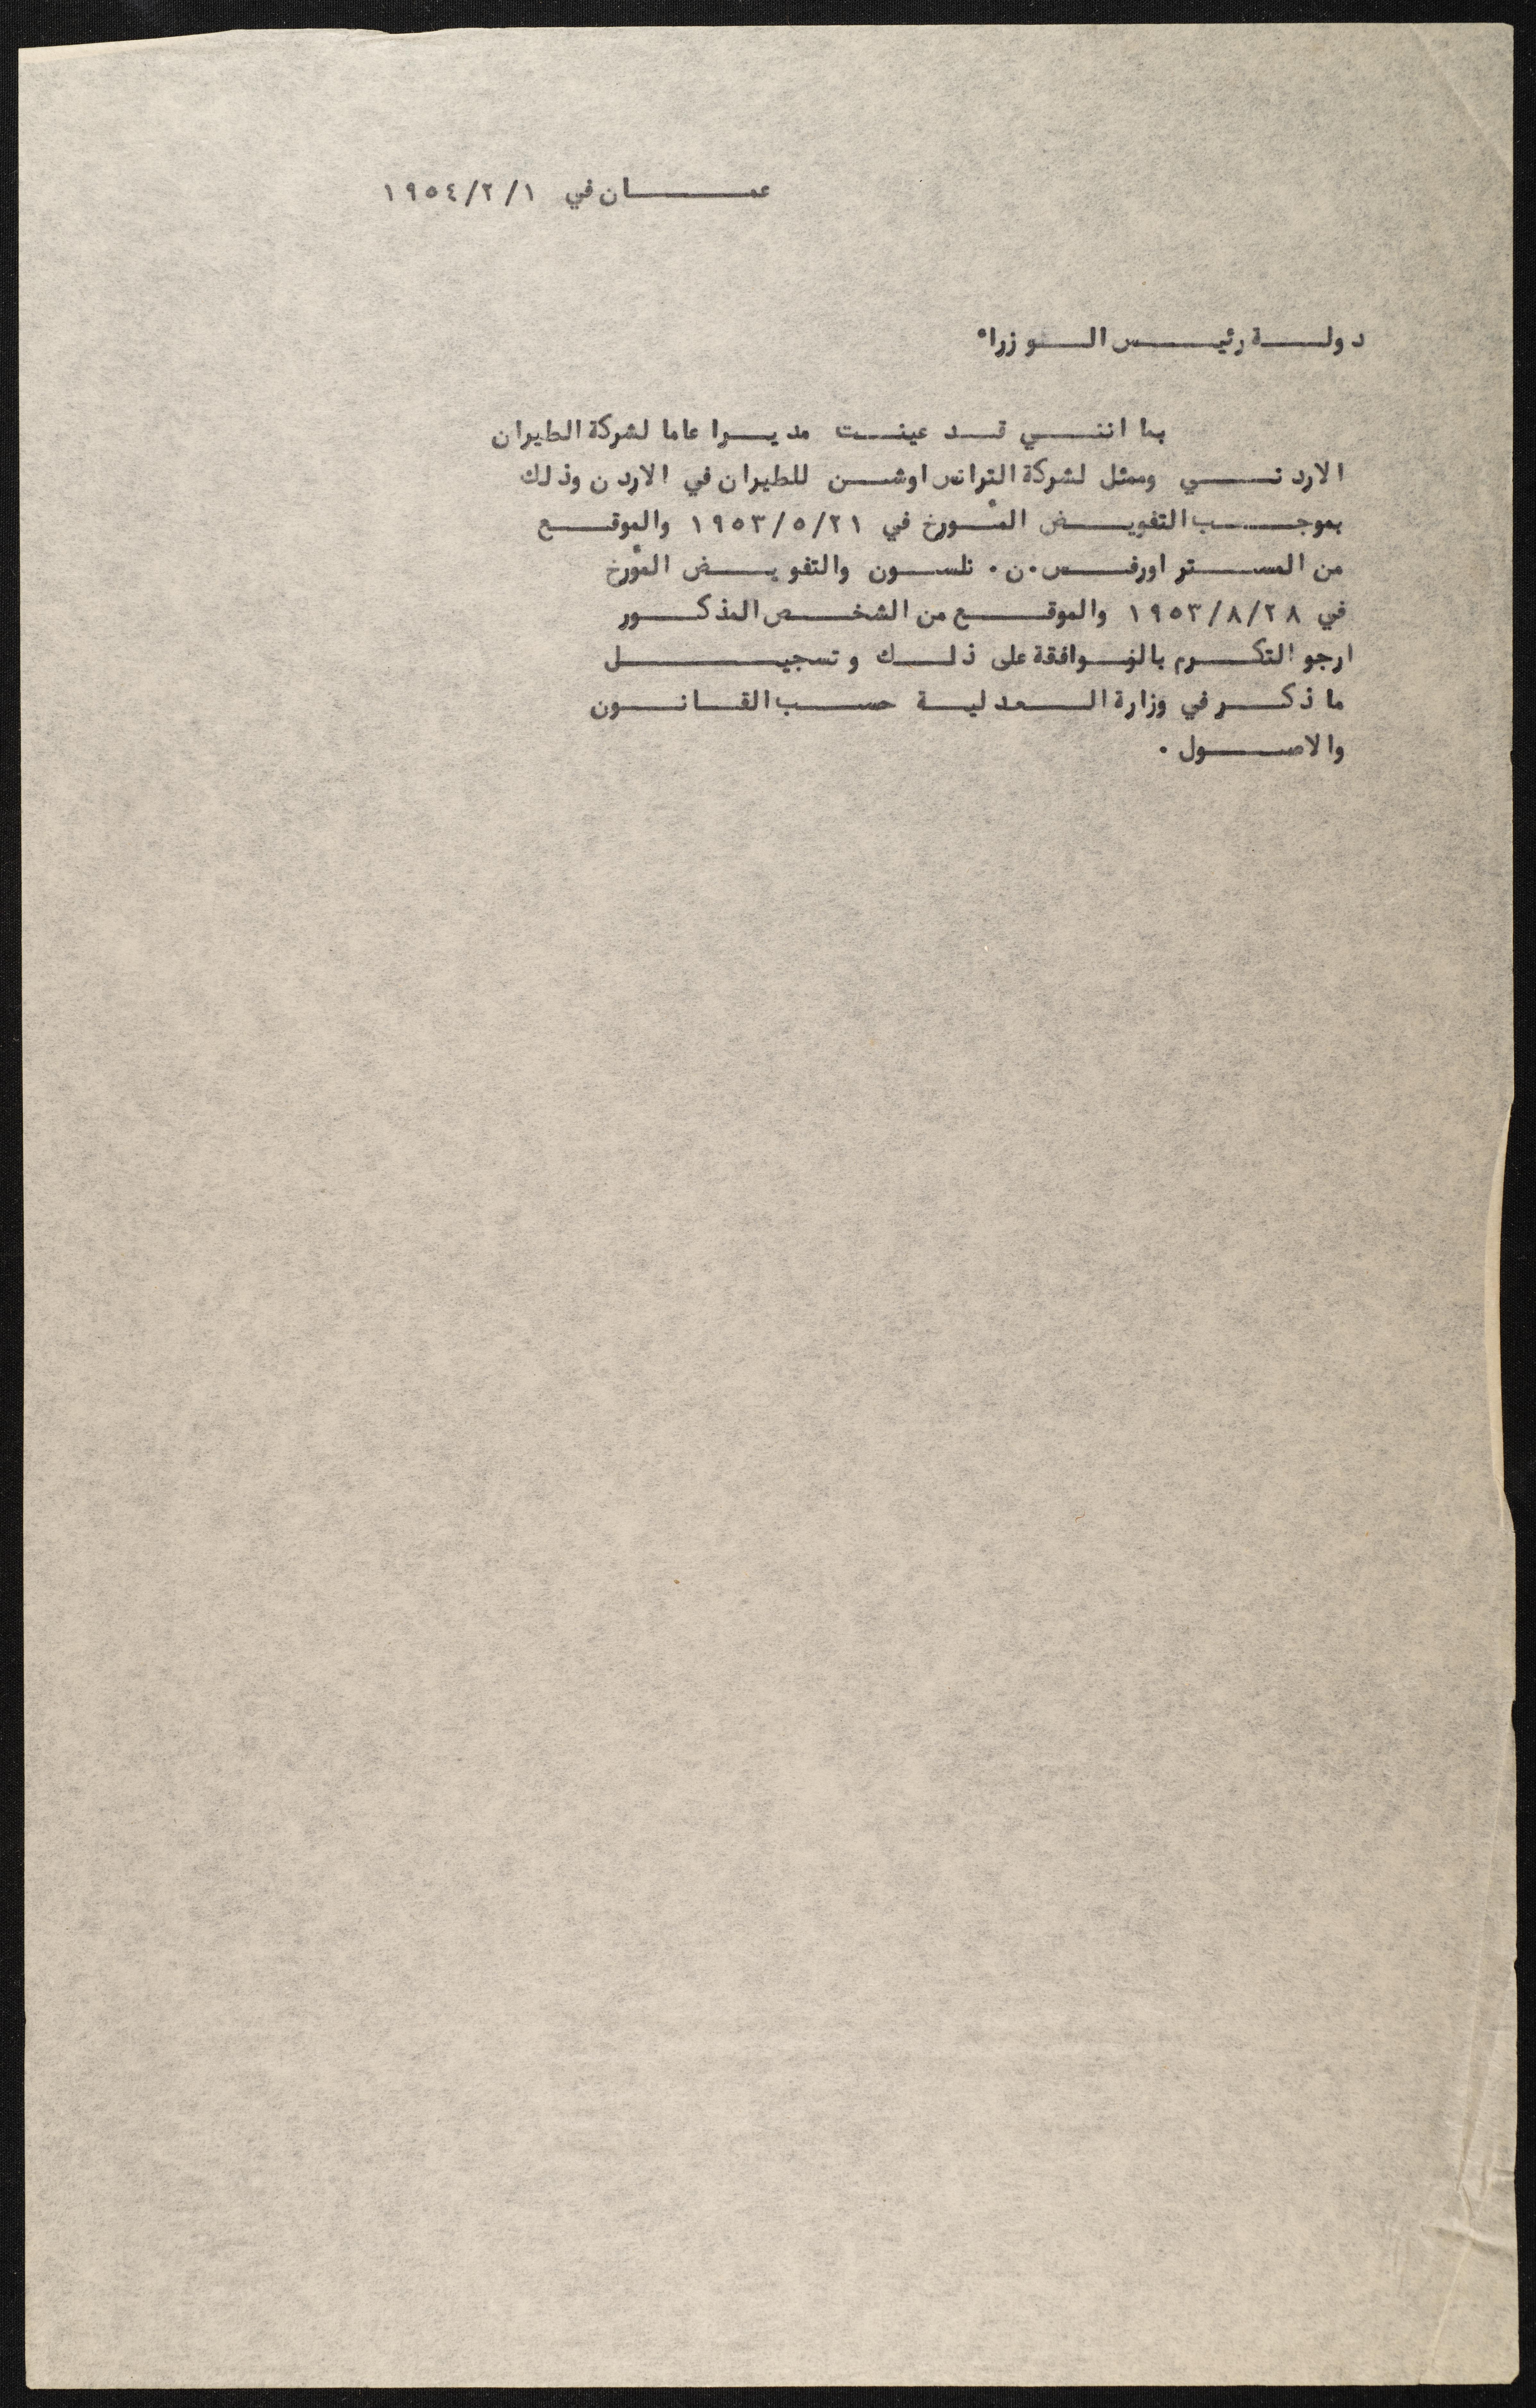 عمان في ١/٢/١٩٥٤
دولة رئيس الوزراء
بما انني قد عينت مديرا عاما لشركة الطيران
الاردني وممثل لشركة الترانس اوشن للطيران في الاردن وذلك
بموجب التفويض المؤرخ في ٢١/٥/١٩٥٣ والموقع
من المستر اورفس.ن. نلسون والتفويض المؤرخ
في ٢٨/٨/١٩٥٣ والموقع من الشخص المذكور
ارجو التكرم بالموافقة على ذلك وتسجيل
ما ذكر في وزارة العدلية حسب القانون
والاصول.